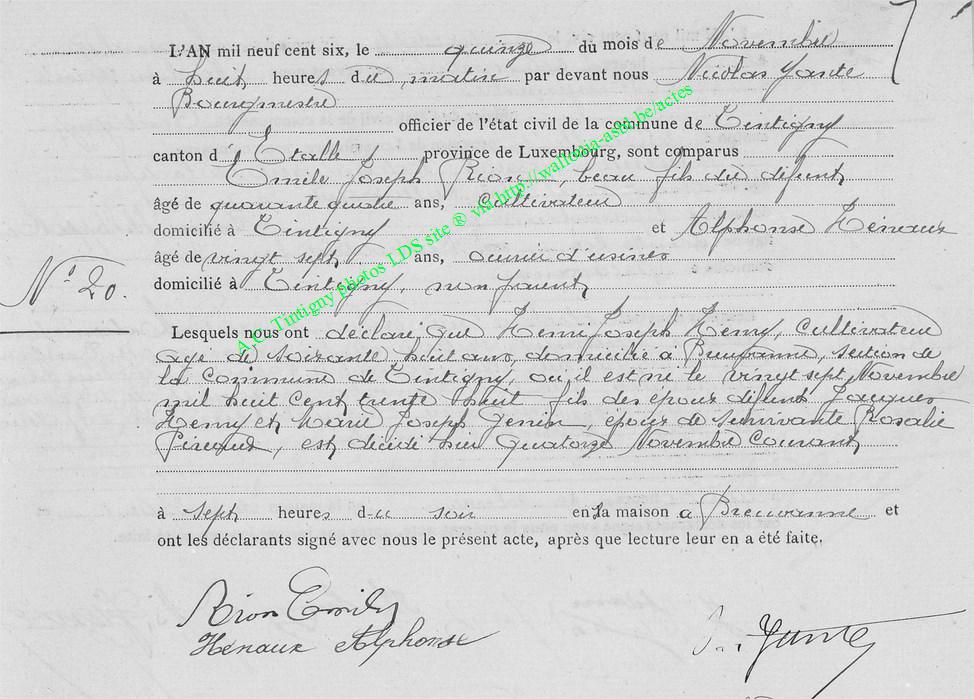 L'AN mil neuf cent six, le quinze du mois de Novembre
à huit heures du matin par devant nous Nicolas Jante
Bourgmestre
officier de l'état civil de la commune de Tintigny
canton d'Etalle province de Luxembourg, sont comparus
Emile Joseph Rion, beau fils du défunt
âgé de quarante quatre ans, Cultivateur
domicilié à Tintigny et Alphonse Henaux
âgé de vingt sept ans, ouvrier d'usines
domicilié à Tintigny, non parent
N° 20.
Lesquels nous ont déclaré que Henri Joseph Henry, Cultivateur
agé de soixante huit ans, domicilié à Breuvanne, section de
la Commune de Tintigny, où il est né le vingt sept Novembre
mil huit cent trente huit fils des époux défunts Jacques
Henry et Marie Joseph Jenin, époux de survivante Rosalie
est décédé hier Quatorze Novembre Courant
à sept heures du soir en sa maison à Breuvanne et
ont les déclarants signé avec nous le présent acte, après que lecture leur en a été faite.
Rion Emile
Hénaux Alphonse
Jante
A.C. Tintigny photos LDS site ® via http://wallonia-asbl.be/actes